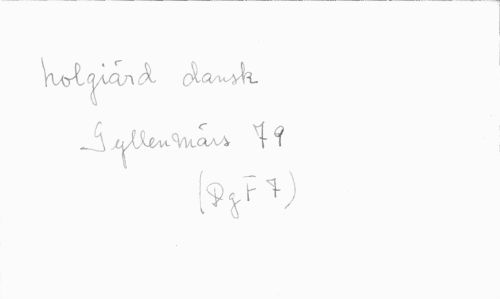 holgiård dansk
Gyllenmärs 79
(DgF 7)